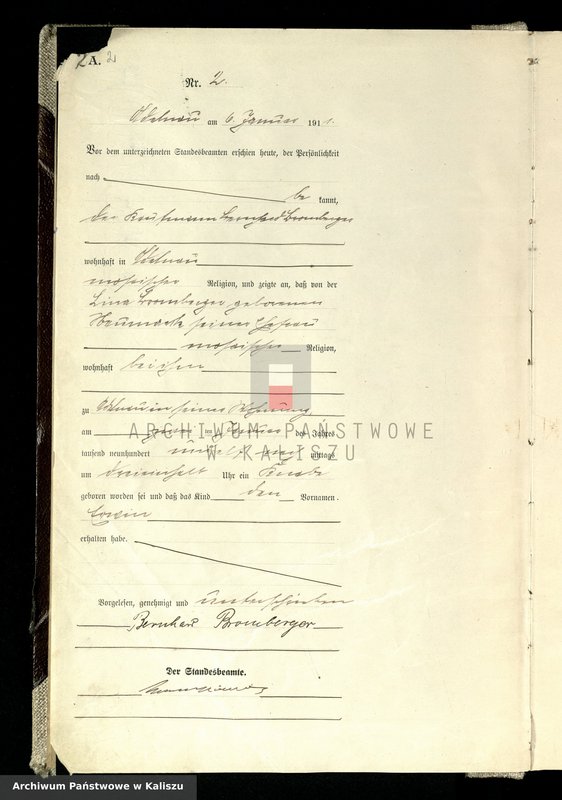 2 A. 2
Nr. 2.
Adelnau am 6. Januar 191 1.
Vor dem unterzeichneten Standesbeamten erschien heute, der Persönlichkeit
nach
be kannt,
der Kaufmann Bernhard Bromberger
wohnhaft in Adelnau
mosaischer Religion, und zeigte an, daß von der
Lina Bromberger geborenen
Neumark seiner Ehefrau
mosaischer Religion,
wohnhaft bei ihm
zu Adelnau in seiner Wohnung
am Januar des Jahres
tausend neunhundert mittags
um Uhr ein Knabe
geboren worden sei und daß das Kind den Vornamen
Erwin
erhalten habe.
Vorgelesen, genehmigt und unterschrieben
Bernhard Bromberger
Der Standesbeamte.
ARCHIWUM PAŃSTWOWE
W KALISZU
Archiwum Państwowe w Kaliszu